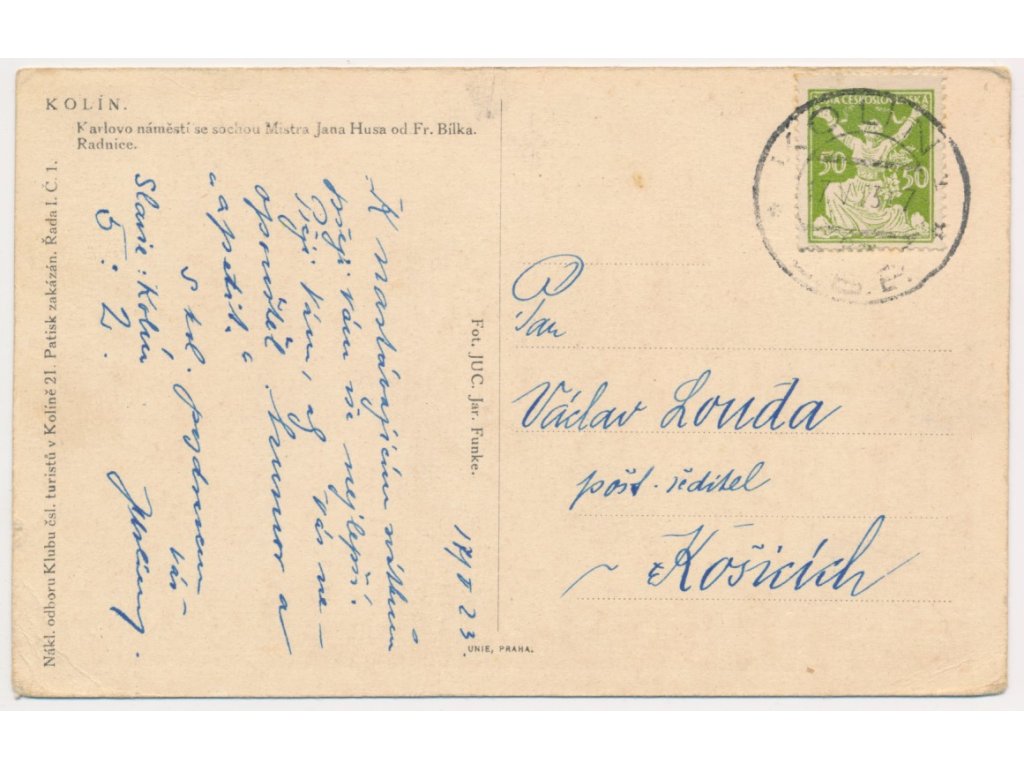 KOLÍN.
Karlovo náměstí se sochou Mistra Jana Husa od Fr. Bílka.
Radnice.
Nákl. odboru Klubu čsl. turistů v Kolíně 21. Patisk zakázán. Řada I. Č. 1.
K nastávajícím
přeji Vám vše nejlepší.
Přeji Vám, aby Vás ne-
opouštěl „humor a
apetit.“
S kol. pozdravem
Váš
Slavie : Kolín
5 : 2.
18/V 23.
Fot. JUC. Jar. Funke.
UNIE, PRAHA.
ČESKOSLOVENSKÁ
50 50
KOLÍN
Pan
Václav Louda
pošt. ředitel
Košicích